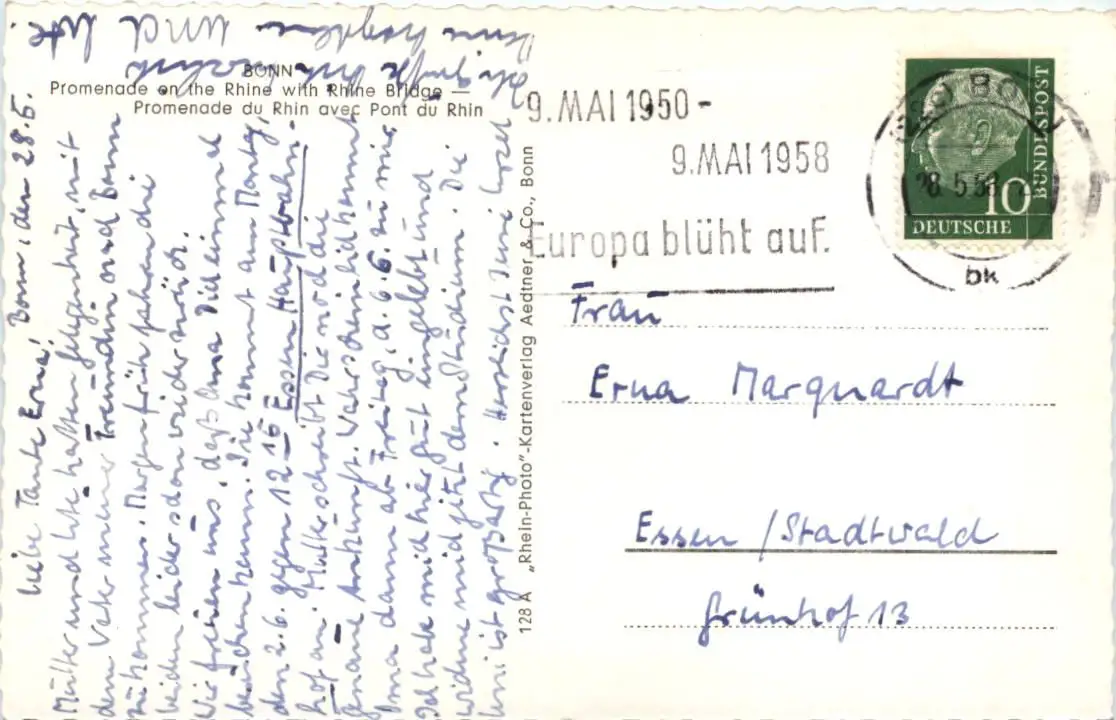 BONN
Promenade on the Rhine with Rhine Bridge —
Promenade du Rhin avec Pont du Rhin
Bonn, den 28.5.
Liebe Tante Erna!
Mutter und Ute hatten Gelegenheit, mit
dem Vater meiner Freundin nach Bonn
zu kommen. Morgen früh fahren die
beiden leider schon wieder zurück.
Wir freuen uns, daß Oma Dich einmal
besuchen kann. Sie kommt am Montag,
den 2.6. gegen 12 15 Essen Hauptbahn-
hof an. Mutter schreibt Dir noch die
genaue Ankunft. Wahrscheinlich kommt
Oma dann ab Freitag, d. 6.6. zu mir.
Ich habe mich hier gut eingelebt und
widme mich jetzt dem Studium. Die
Uni ist großartig. Herzlichst
Ich grüße Dich herzlich
Deine
und Ute.
128 A „Rhein-Photo"-Kartenverlag Aedtner & Co., Bonn
9. MAI 1950 -
9. MAI 1958
Europa blüht auf.
BONN
28.5.58
bk
10
DEUTSCHE
BUNDESPOST
Frau
Erna Marquardt
Essen / Stadtwald
Grünhof 13